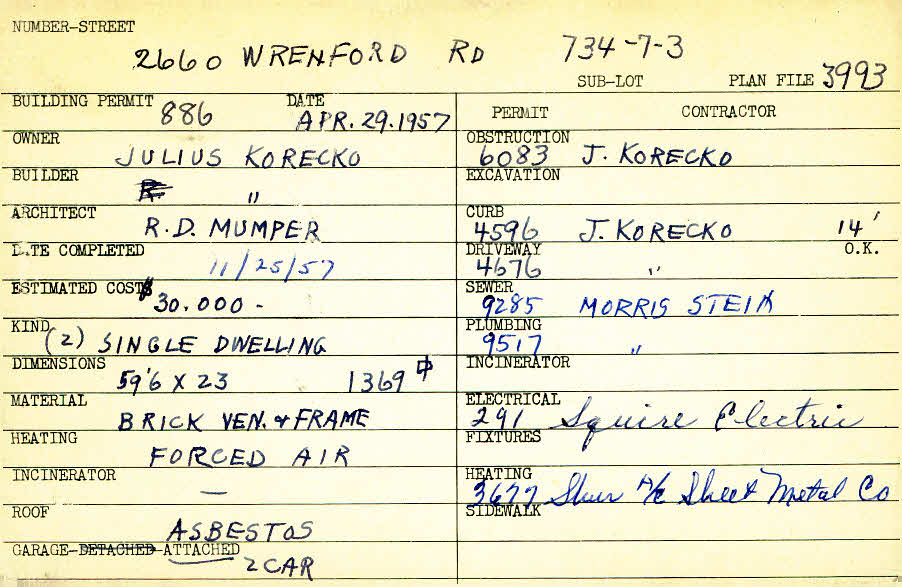 NUMBER-STREET
2660 WRENFORD RD 734-7-3
SUB-LOT PLAN FILE 3993
BUILDING PERMIT 886 DATE APR. 29. 1957
OWNER
JULIUS KORECKO
BUILDER
"
ARCHITECT
R.D. MUMPER
DATE COMPLETED
11/25/57
ESTIMATED COST $
30.000 -
KIND
(2) SINGLE DWELLING
DIMENSIONS
59'6 X 23 1369
MATERIAL
BRICK VEN. & FRAME
HEATING
FORCED AIR
INCINERATOR
—
ROOF
ASBESTOS
GARAGE-DETACHED-ATTACHED
2 CAR
PERMIT CONTRACTOR
OBSTRUCTION
6083 J. KORECKO
EXCAVATION
CURB
4596 J. KORECKO 14'
DRIVEWAY O.K.
4676 "
SEWER
9285 MORRIS STEIN
PLUMBING
9517 "
INCINERATOR
ELECTRICAL
291 Squire Electric
FIXTURES
HEATING
3677 A/C Sheet Metal Co
SIDEWALK